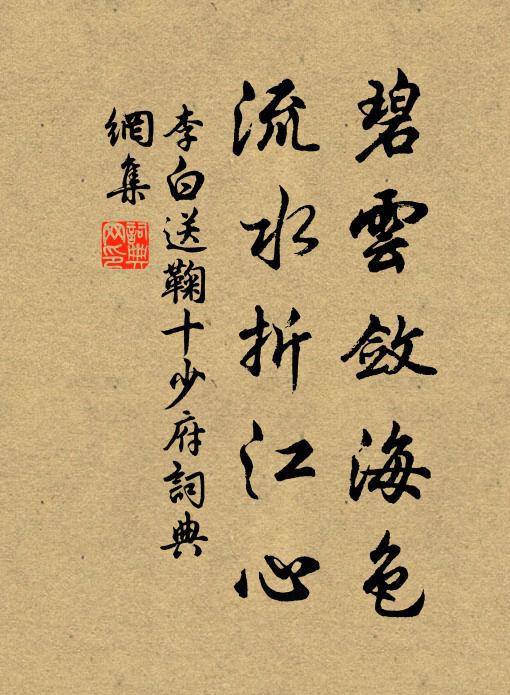 碧雲斂海色
流水折江心
李白送鞠十少府詞典
網集
詞典網印